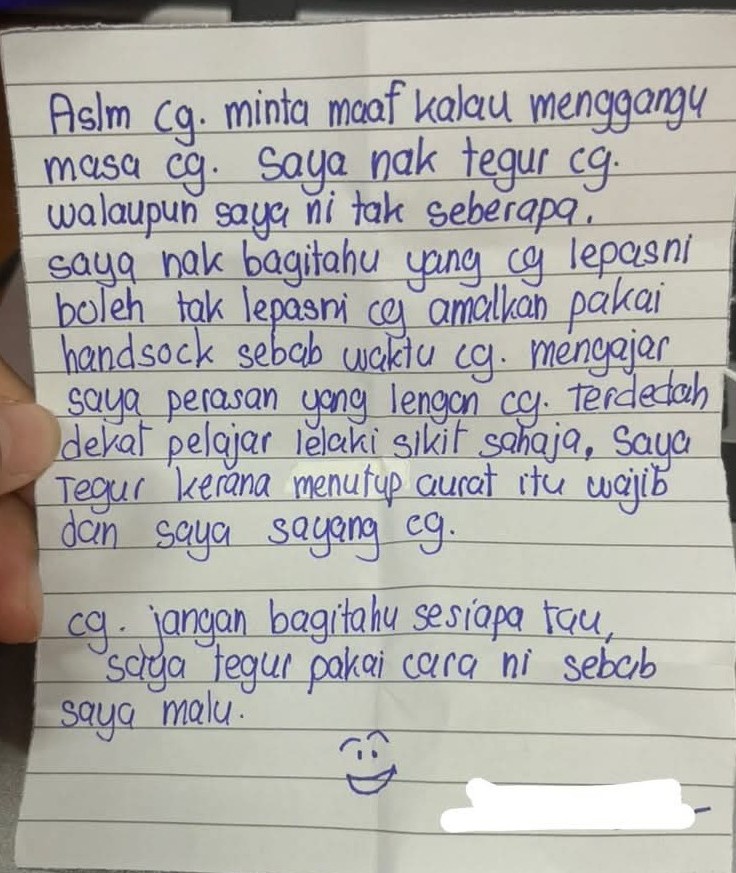 Aslm Cg. minta maaf kalau menggangu
masa cg. Saya nak tegur cg.
walaupun saya ni tak seberapa.
saya nak bagitahu yang cg lepasni
boleh tak lepasni cg amalkan pakai
handsock sebab waktu cg. mengajar
saya perasan yang lengan cg. Terdedah
dekat pelajar lelaki sikit sahaja, Saya
Tegur kerana menutup aurat itu wajib
dan saya sayang cg.
cg. jangan bagitahu sesiapa tau,
saya tegur pakai cara ni sebab
saya malu.